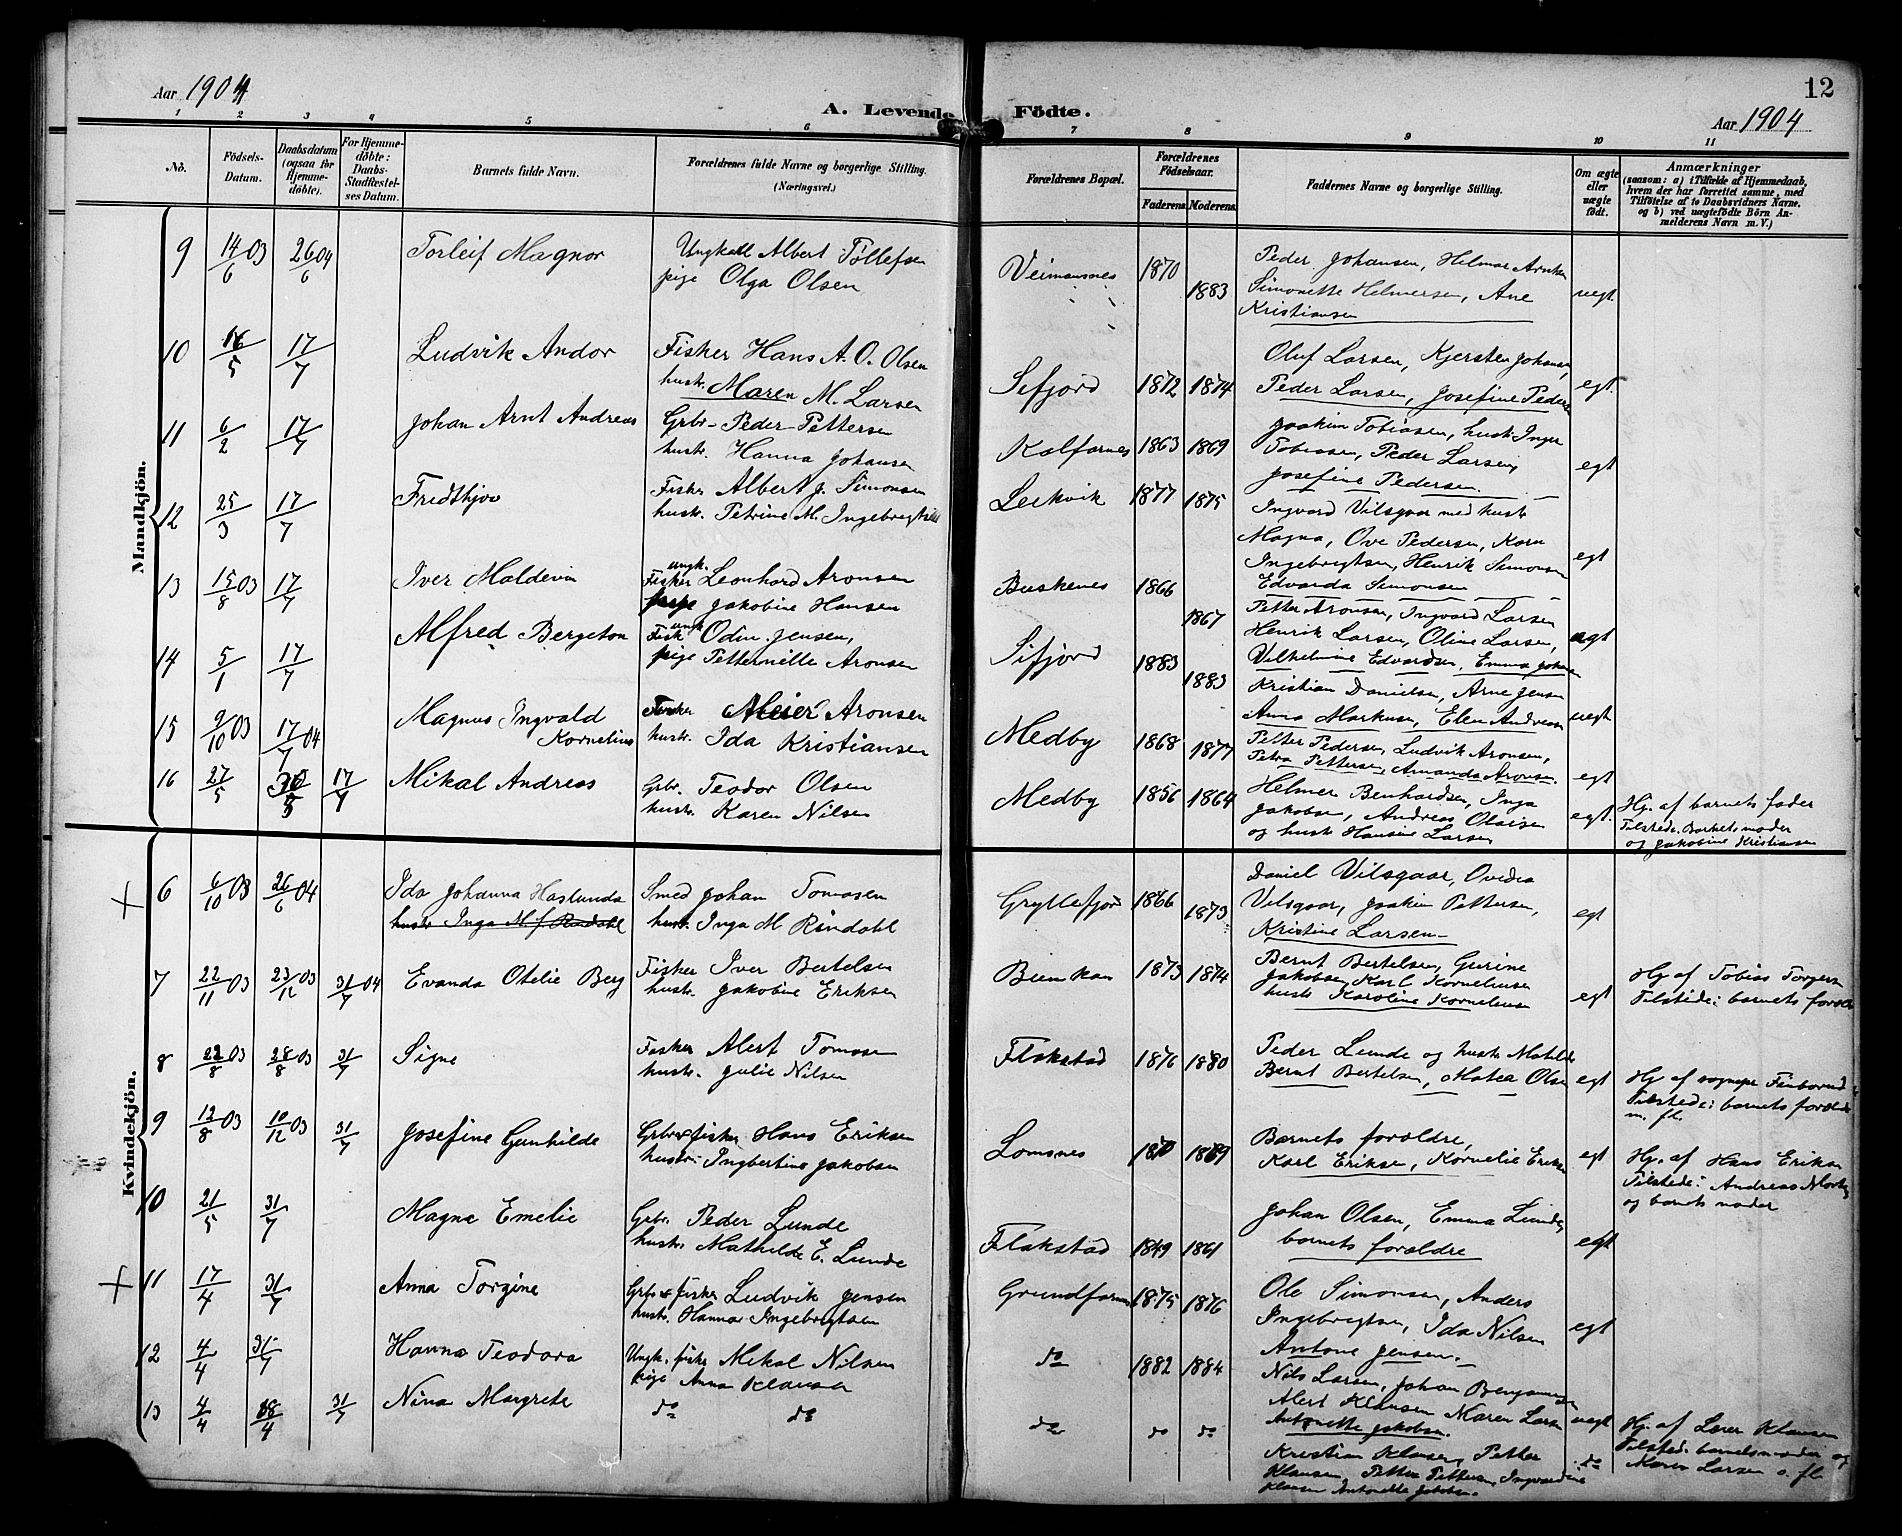 Aar 1904
A. Levende Fødte.
Aar 1904
12
1 2 3 4 5 6 7 8 9 10 11
No.
Fødsels-Datum.
Daabsdatum (ogsaa for Hjemme-døbte).
For Hjemme-døbte: Daabs-Stadfæstel-ses Datum.
Barnets fulde Navn.
Forældrenes fulde Navne og borgerlige Stilling. (Næringsvei.)
Forældrenes Bopæl.
Forældrenes Fødselsaar.
Faderens. Moderens.
Faddernes Navne og borgerlige Stilling.
Om ægte eller uægte født.
Anmærkninger
(saasom: a) i Tilfælde af Hjemmedaab,
hvem der har forrettet samme, med
Tilføielse af to Daabsvidners Navne,
og b) ved uægtefødte Børn An-
melderens Navn m. V.)
Mandkjøn.
9 14/6 03 26/6 04 Torleif Magnor
Ungkall Albert Tollefsen
pige Olga Olsen
Veimansnes 1870 1883
Peder Johansen, Helmar
Simonette Helmersen, Ane
Kristiansen
uegt
10 16/5 17/7 Ludvik Andor
Fisker Hans A. O. Olsen
hustr. Maren M. Larsen
Sifjord 1872 1874
Oluf Larsen, Kjersten Johans
Peder Larsen, Josefine Peders
egt.
11 6/2 17/7 Johan Arnt Andreas
Grbr. Peder Pettersen
hustr. Hanna Johansen
Kalfarnes 1863 1869
Joakim Tobiasen, hustr Inger
Tobiasen, Peder Larsen,
Josefine Pedersen.
egt
12 25/3 17/7 Fredthjov
Fisker Albert J. Simonsen
hustr. Petrine M. Ingebrigts
Leikvik 1877 1875
Ingvard Vilsgaar med hustr
Magna, Ove Pedersen, Karn
Ingebrigtsen, Henrik Simonsen
Edvarda Simonsen
egt
13 15/8 03 17/7 Iver Maldevin
ungk.
Fisker Leonhard Aronsen
pige Jakobine Hansen
Buskenes 1866 1867
Petter Aronsen, Ingvard Larsen
Henrik Larsen, Oline Larsen,
Vilhelmine Edvardsen, Emma Johan
uegt
14 5/1 17/7 Alfred Bergeton
Fisk ungk Odin Jensen,
pige Petternelle Aronsen
Sifjord 1883 1883
Kristian Danielsen, Arne Jensen
Anna Markusen, Elen Andreasen
uegt
15 9/10 03 17/7 04 Magnus Ingvald
Kornelius
Fisker Meier Aronsen
hustr. Ida Kristiansen
Medby 1868 1877
Petter Pedersen, Ludvik Aronsen,
Petra Pettersen, Amanda Aronsen.
egt
16 27/5 30/5 17/7 Mikal Andreas
Grbr. Teodor Olsen
hustr. Karen Nilsen
Medby 1856 1864
Helmer Benhardsen, Inga
Jakobsen, Andreas Olaisen
og hustr Hansine Larsen
egt.
Hj. af barnets fader
Tilstede: Barnets moder
og Jakobine Kristiansen
Kvindekjøn.
+ 6 6/10 03 26/6 04 Ida Johanna Haslunda
hustr Inga M. f. Rindahl
Smed Johan Tomasen
hustr. Inga M Rindahl
Gryllefjord 1866 1873
Daniel Vilsgaar, Ovedia
Vilsgaar, Joakim Pettersen,
Kristine Larsen
egt
7 22/11 03 23/12 03 31/7 04 Evanda Otelie Berg
Fisker Iver Bertelsen
hustr. Jakobine Eriksen
1873 1874
Bernt Bertelsen, Gurine
Jakobsen, Karl Korneliusen
hustr Karoline Korneliusen
egt
Hj af Tobias Torgers
Tilstede: barnets foræld
8 22/8 03 28/8 03 31/7 Signe
Fisker Alert Tomasen
hustr. Julie Nilsen
Flakstad 1876 1880
Peder Lunde og hustr Matilde
Bernt Bertelsen, Matea Olsen
egt
Hj. af sognepr
Tilstede: barnets foræld
m. fl.
9 12/8 03 10/12 03 31/7 Josefine Gunhilde
Grbr & fisker Hans Eriksen
hustr. Ingbertine Jakobsen
Lomsnes 1870
Barnets forældre,
Karl Eriksen, Kornelie Eriksen
egt
Hj. af Hans Eriksen
Tilstede: Andreas
og barnets moder
10 21/5 31/7 Magna Emelie
Grbr. Peder Lunde
hustr Mathilde E. Lunde
Flakstad 1849 1861
Johan Olsen, Emma Lunde,
barnets forældre
egt
+ 11 17/4 31/7 Anna Torgine
Grbr & fisker Ludvik Jensen
hustr. Hanna Ingebrigtsen
Grundfarnes 1875 1876
Ole Simonsen, Anders
Ingebrigtsen, Ida Nilsen
Antone Jensen.
egt
12 4/4 31/7 Hanna Teodora
Ungk. fisker Mikal Nilsen
pige Anna Klausen
do 1882 1884
Nils Larsen, Johan Benjaminsen
Alert Klausen Maren Larsen
Antonette Jakobsen.
uegt
13 4/4 /4 31/7 Nina Margrete
do do
do do do
Kristian Klausen, Petter
Klausen, Petter Pettersen, Ingvardine
Klausen Antonette Jakobsen.
do
Hj. af Lærer Klausen
Tilstede: barnets moder og
Maren Larsen o. fl